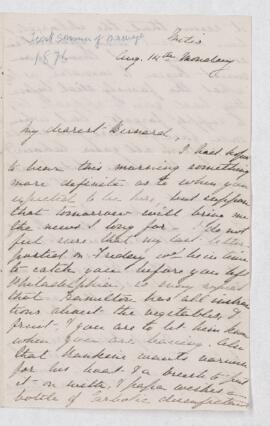 1876
Metis
Aug. 14th Monday
My dearest Bernard,
I had hoped
to hear this morning something
more definite as to when you
expected to be here, but suppose
that tomorrow will bring me
the news I long for. I do not
feel sure that my last letter
posted on Friday wd be in time
to catch you before you left
Philadelphia, so may repeat
that Hamilton has all instruc
tions about the vegetables, &
fruit. If you are to let him know
when you are leaving. Also
that wants varnish
for his boat & a brush to put
it on with, & papa wishes a
bottle of Carbolic disinfecting